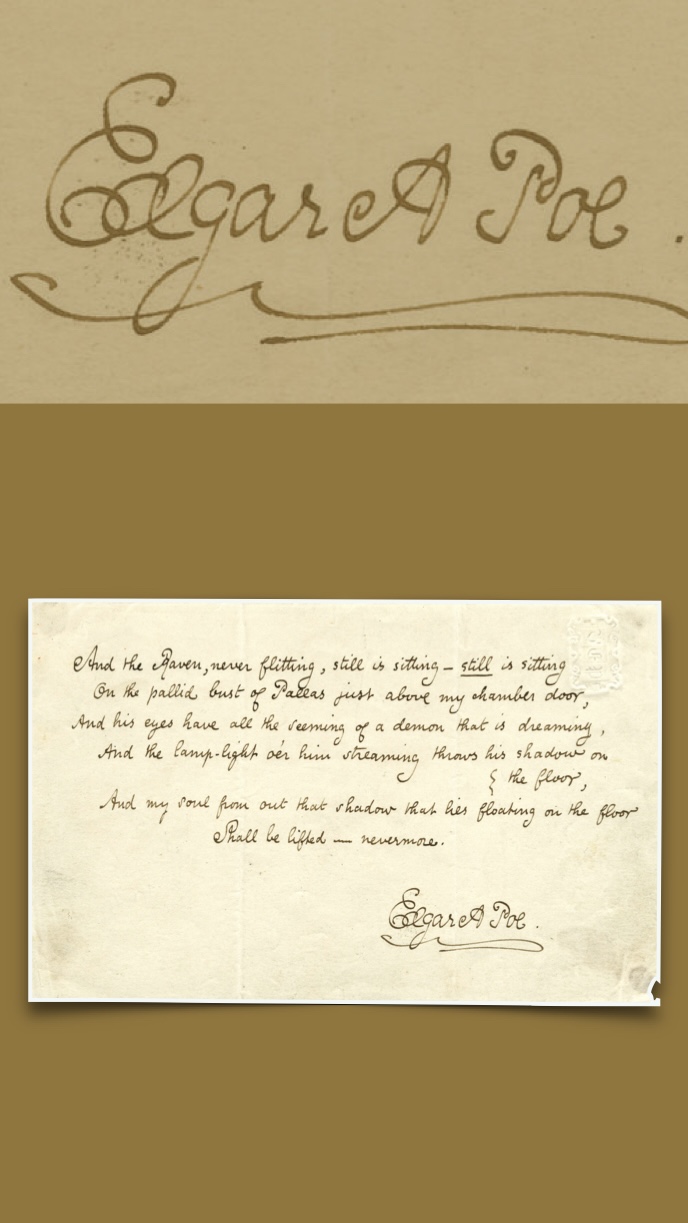 Edgar A Poe.
And the Raven, never flitting, still is sitting — still is sitting
On the pallid bust of Pallas just above my chamber door,
And his eyes have all the seeming of a demon that is dreaming,
And the lamp-light o'er him streaming throws his shadow on
{ the floor,
And my soul from out that shadow that lies floating on the floor
Shall be lifted — nevermore.
Edgar A Poe.